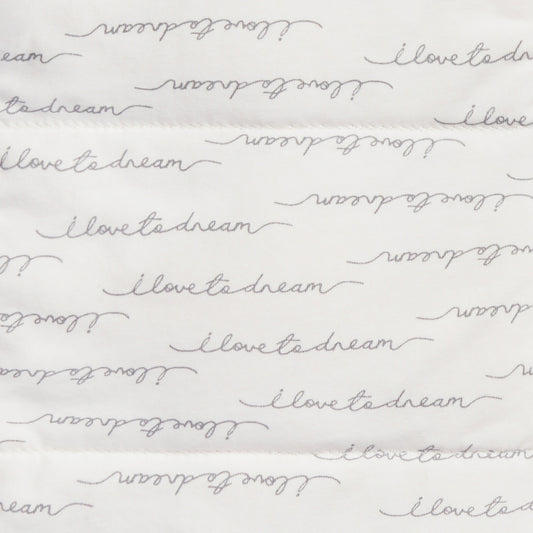 i love to dream
eam
i love to dr
i love to dream
to dream
i love
i love to dream
i love to dream
i love to dream
i love to dream
ve to dream
i
i love to dream
dream
i love to
i love to dream
i love to drea
m
i love to dream
i love to dream
i love to dream
i love to dream
eam
i love to d